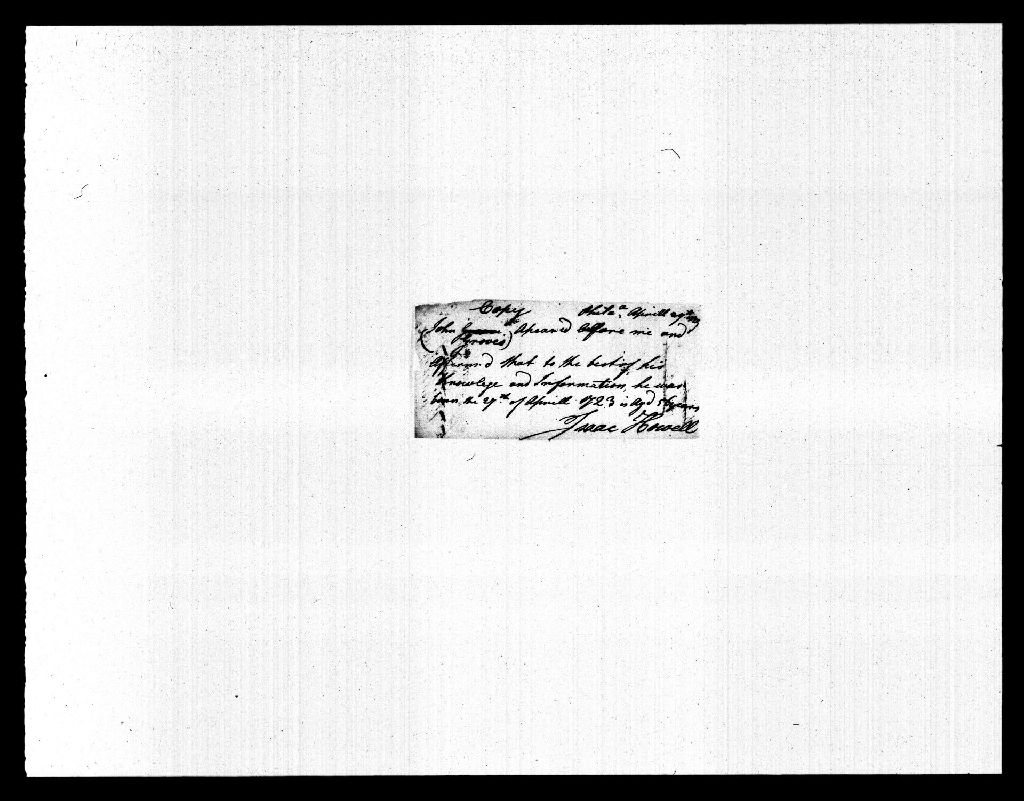 Copy Phila.ª Aprill 29th
(John Groves) Apeared before me and
Affirm'd that to the best of his
Knowlege and Information, he was
born the 27th of Aprill 1723 is Agd 56 years
Isaac Howell